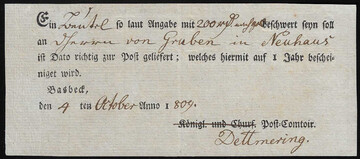 Ein Beutel so laut Angabe mit 200 rthl beschwert seyn soll
an Herrn von Gruben in Neuhaus
ist Dato richtig zur Post geliefert; welches hiermit auf 1 Jahr beschei-
niget wird.
Basbeck,
den 4 ten Oktober Anno 1809.
Königl. und Churf. Post-Comtoir.
Dettmering.